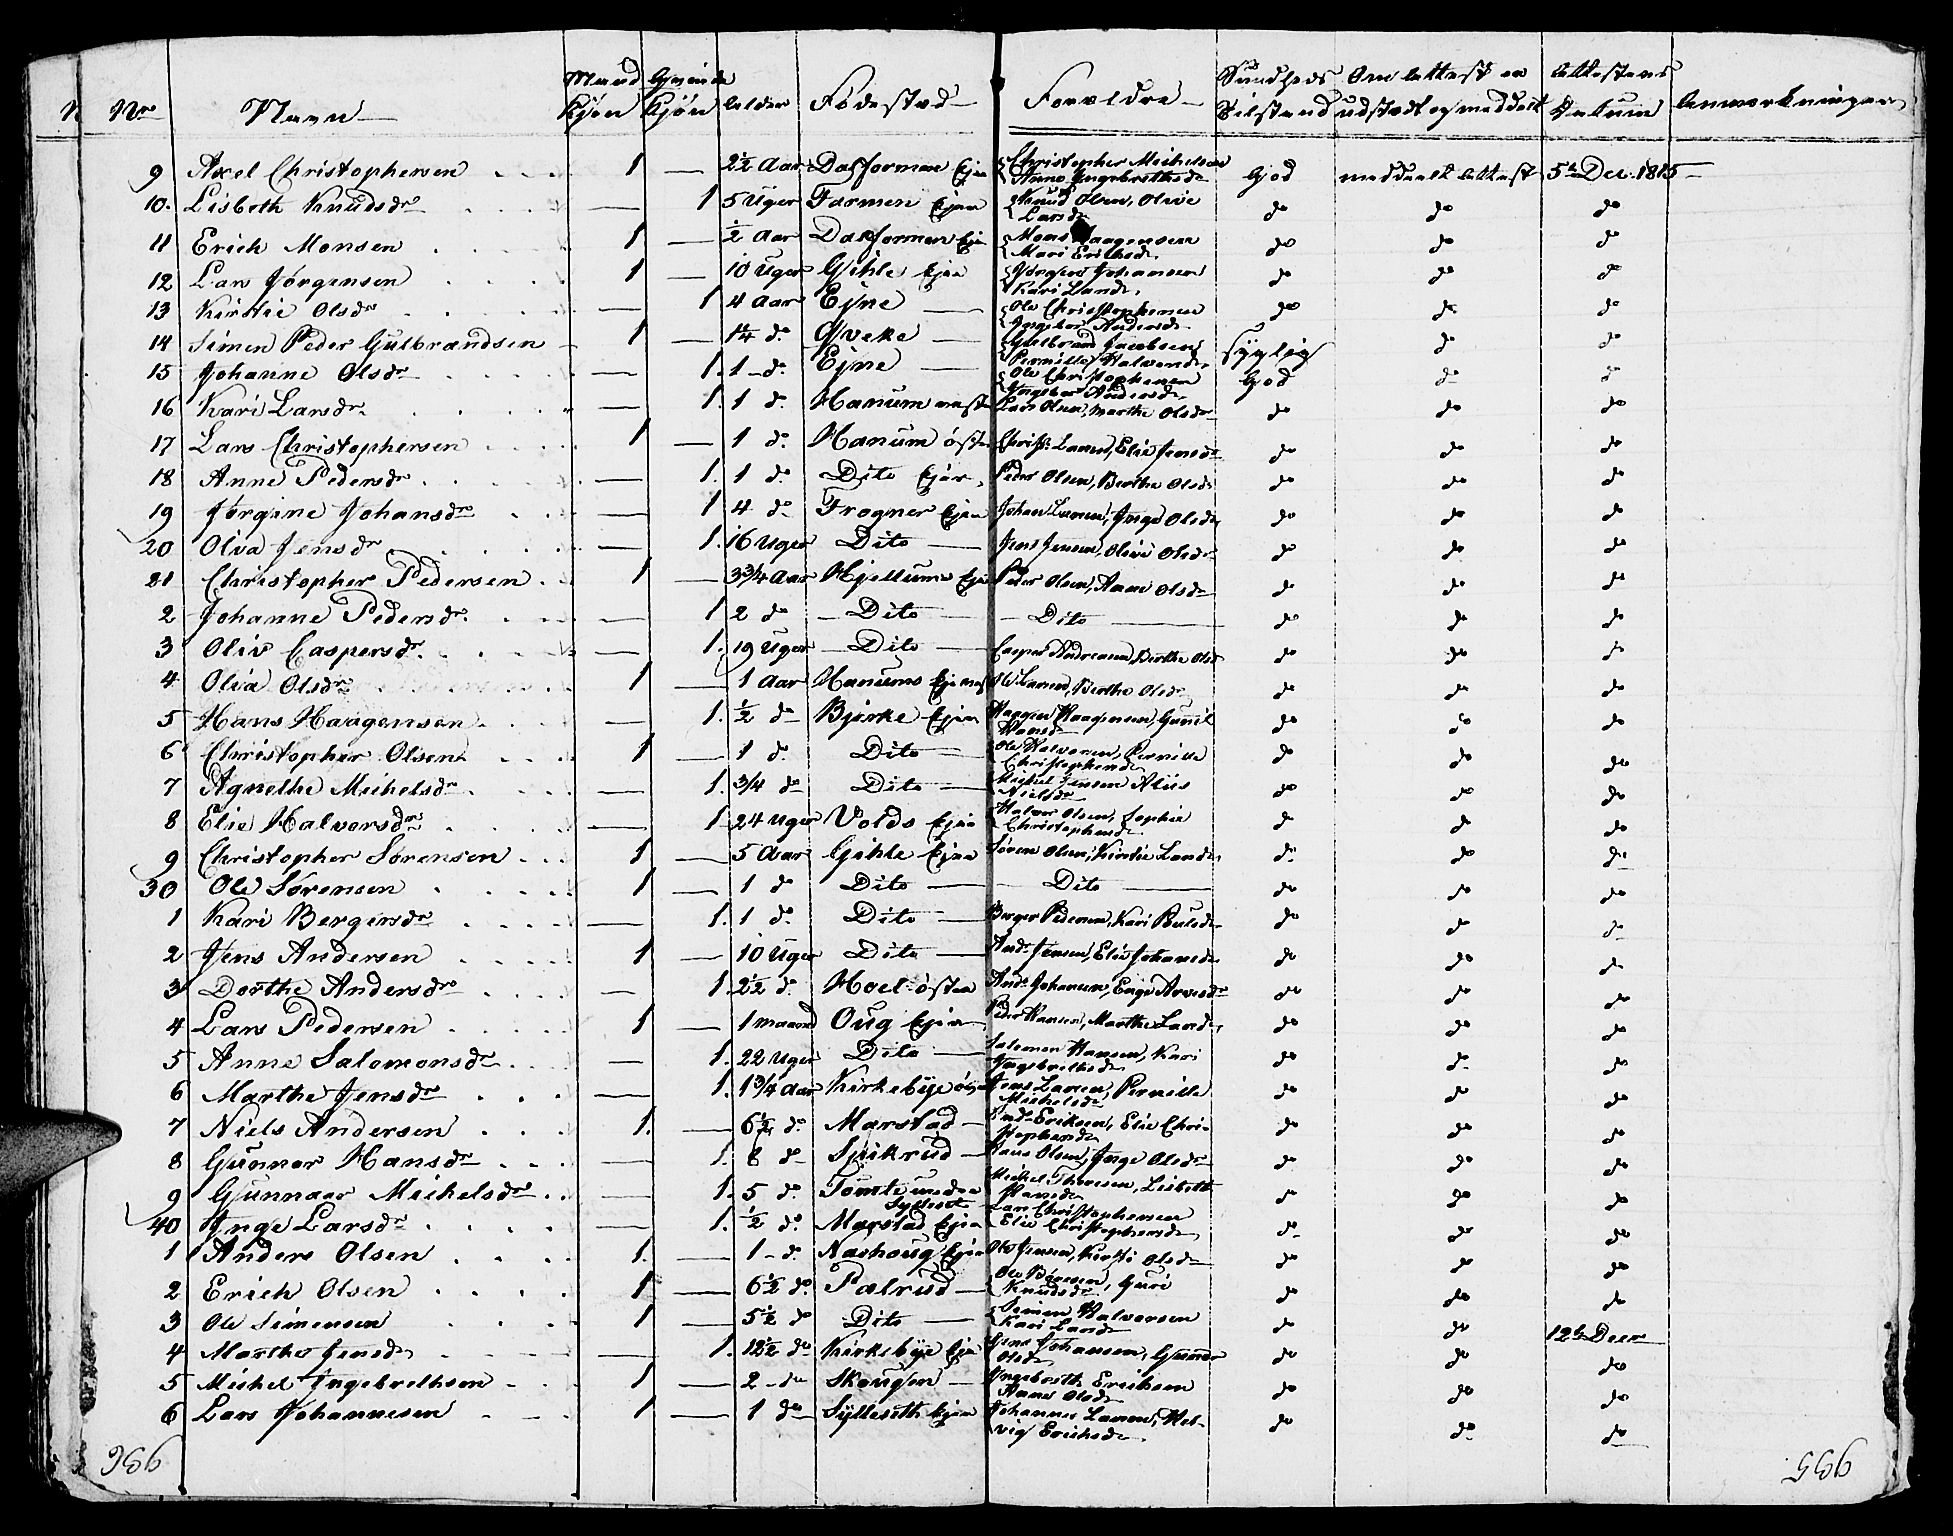 Nr Navn Mand Kjön Qvinde Kjön Alder Födested Forældre Sundheds Tilstand Om Attest er udstædt og meddelt Attestens Datum Anmærkninger
9 Axel Christophersen 1 — 2½ Aar Dalformen Ejer Christopher Michelsen Anne Ingebrethsdr God meddeelt Attest 5te Dec. 1815
10. Lisbeth Knudsdr — 1 5 Uger Farmen Knud Olsen, Olive Larsdr do do do
11 Erich Monsen 1 — ½ Aar Dalformen Mons Haagensen Mari Erichsd. do do do
12 Lars Jörgensen 1 — 10 Uger Gihle Jörgen Johansen Kari Larsd. do do do
13 Kirstie Olsdr — 1 4 Aar Ejne — Ole Christophersen Ingebor Andersd. do do do
14 Simen Peder Gulbrandsen 1 — 1¼ do. Qveke — Gulbrand Jacobsen Pernille Halvorsd. syglig do do
15 Johanne Olsdr — 1. 1 do. Ejne — Ole Christophersen Ingebor Andersd. God do do
16 Kari Larsdr. — 1. 1 do. Hanum Lars Olsen, Marthe Olsdr do do do
17 Lars Christophersen 1 — 1 do. Hanum östre Christ. Larsen, Elie Jensdr do do do
18 Anne Pedersdr — 1. 1 do. Dito Peder Olsen, Berthe Olsd. do do do
19 Jörgine Johansdr — 1 4 do Frogner Johan Larsen, Inge Olsd. do do do
20 Olva Jensdr — 1. 16 Uger Dito — Jens Jensen, Olive Olsd. do do do
21 Christopher Pedersen 1 — 3¾ Aar Hjellum Peder Olsen, Anne Olsd. do do do
2 Johanne Pedersdr. — 1 2 do — Dito — — Dito — do do do
3 Oliv Caspersdr. — 1. 19 Uger — Dito — Casper Andreasen, Berthe Olsd do do do
4 Olia Olsdr 1 — 1 Aar Hanums Ole Larsen, Berthe Olsd. do do do
5 Hans Haagensen — 1. ½ do Bjerke Haagen Haagensen, Gunil Hansd. do do do
6 Christopher Olsen 1 — 1 do. Dito — Ole Halvorsen, Pernille Christophersd. do do do
7 Agnethe Michelsdr — 1. 3/4 do Dito — Michel Jensen Nielsdr do do do
8 Elie Halvorsdr — 1 24 Uger Volds Halvor Olsen, Sophie Christophersd. do do do
9 Christopher Sörensen 1 — 5 Aar Gihle Sören Olsen, Kirstie Larsd. do do do
30 Ole Sörensen 1 — 1 do Dito — — Dito — do do do
1 Kari Bergersdr — 1. 1 do. Dito — Berger Pedersen, Kari Poulsd. do do do
2 Jens Andersen 1 — 10 Uger Dito — Ands Jensen, Elie Johansd. do do do
3 Dorthe Andersdr — 1. 2½ do. Hoel östen Ands Johansen, do do do
4 Lars Pedersen 1 — 1 maaned Oug Peder Hansen, Marthe Larsd. do do do
5 Anne Salomonsdr — 1. 22 Uger Dito — Salomon Hansen, Kari Ingebrethsd. do do do
6 Marthe Jensdr — 1. 1¾ Aar Kirkebye Jens Larsen, Pernille Michelsd. do do do
7 Niels Andersen 1. — 6½ do. Marstad — Ands Eriksen, Elie Christophersd. do do do
8 Gunner Hansdr — 1. 8 do Spikrud — Hans Olsen, Inge Olsdr do do do
9 Gunnaar Michelsdr — 1. 5 do. Tomte under Michel Thoresen, Lisbeth Hansd. do do do
40 Inge Larsdr — 1. ½ do. Marstad Lars Christophersen Elie Christophersd. do do do
1 Anders Olsen 1. — 1 do. Nashoug Ole Jensen, Kirsti Olsd. do do do
2 Erich Olsen 1 — 6½ do. Palrud — Guri Knudsdr do do do
3 Ole Simensen 1 — 5½ do Dito — Simen Halvorsen Kari Larsd. do do 12te Decr
4 Marthe Jensd. — 1. 12½ do Kirkebye Jens Johansen, Gunner Olsd. do do do
5 Michel Ingebrethsen 1 — 2 do Skougen — Ingebreth Erichsen Anne Olsd. do do do
6 Lars Johannesen 1 — 1 do Sylleseth Johannes Larsen, Helvig Erichsd. do do do
956 955